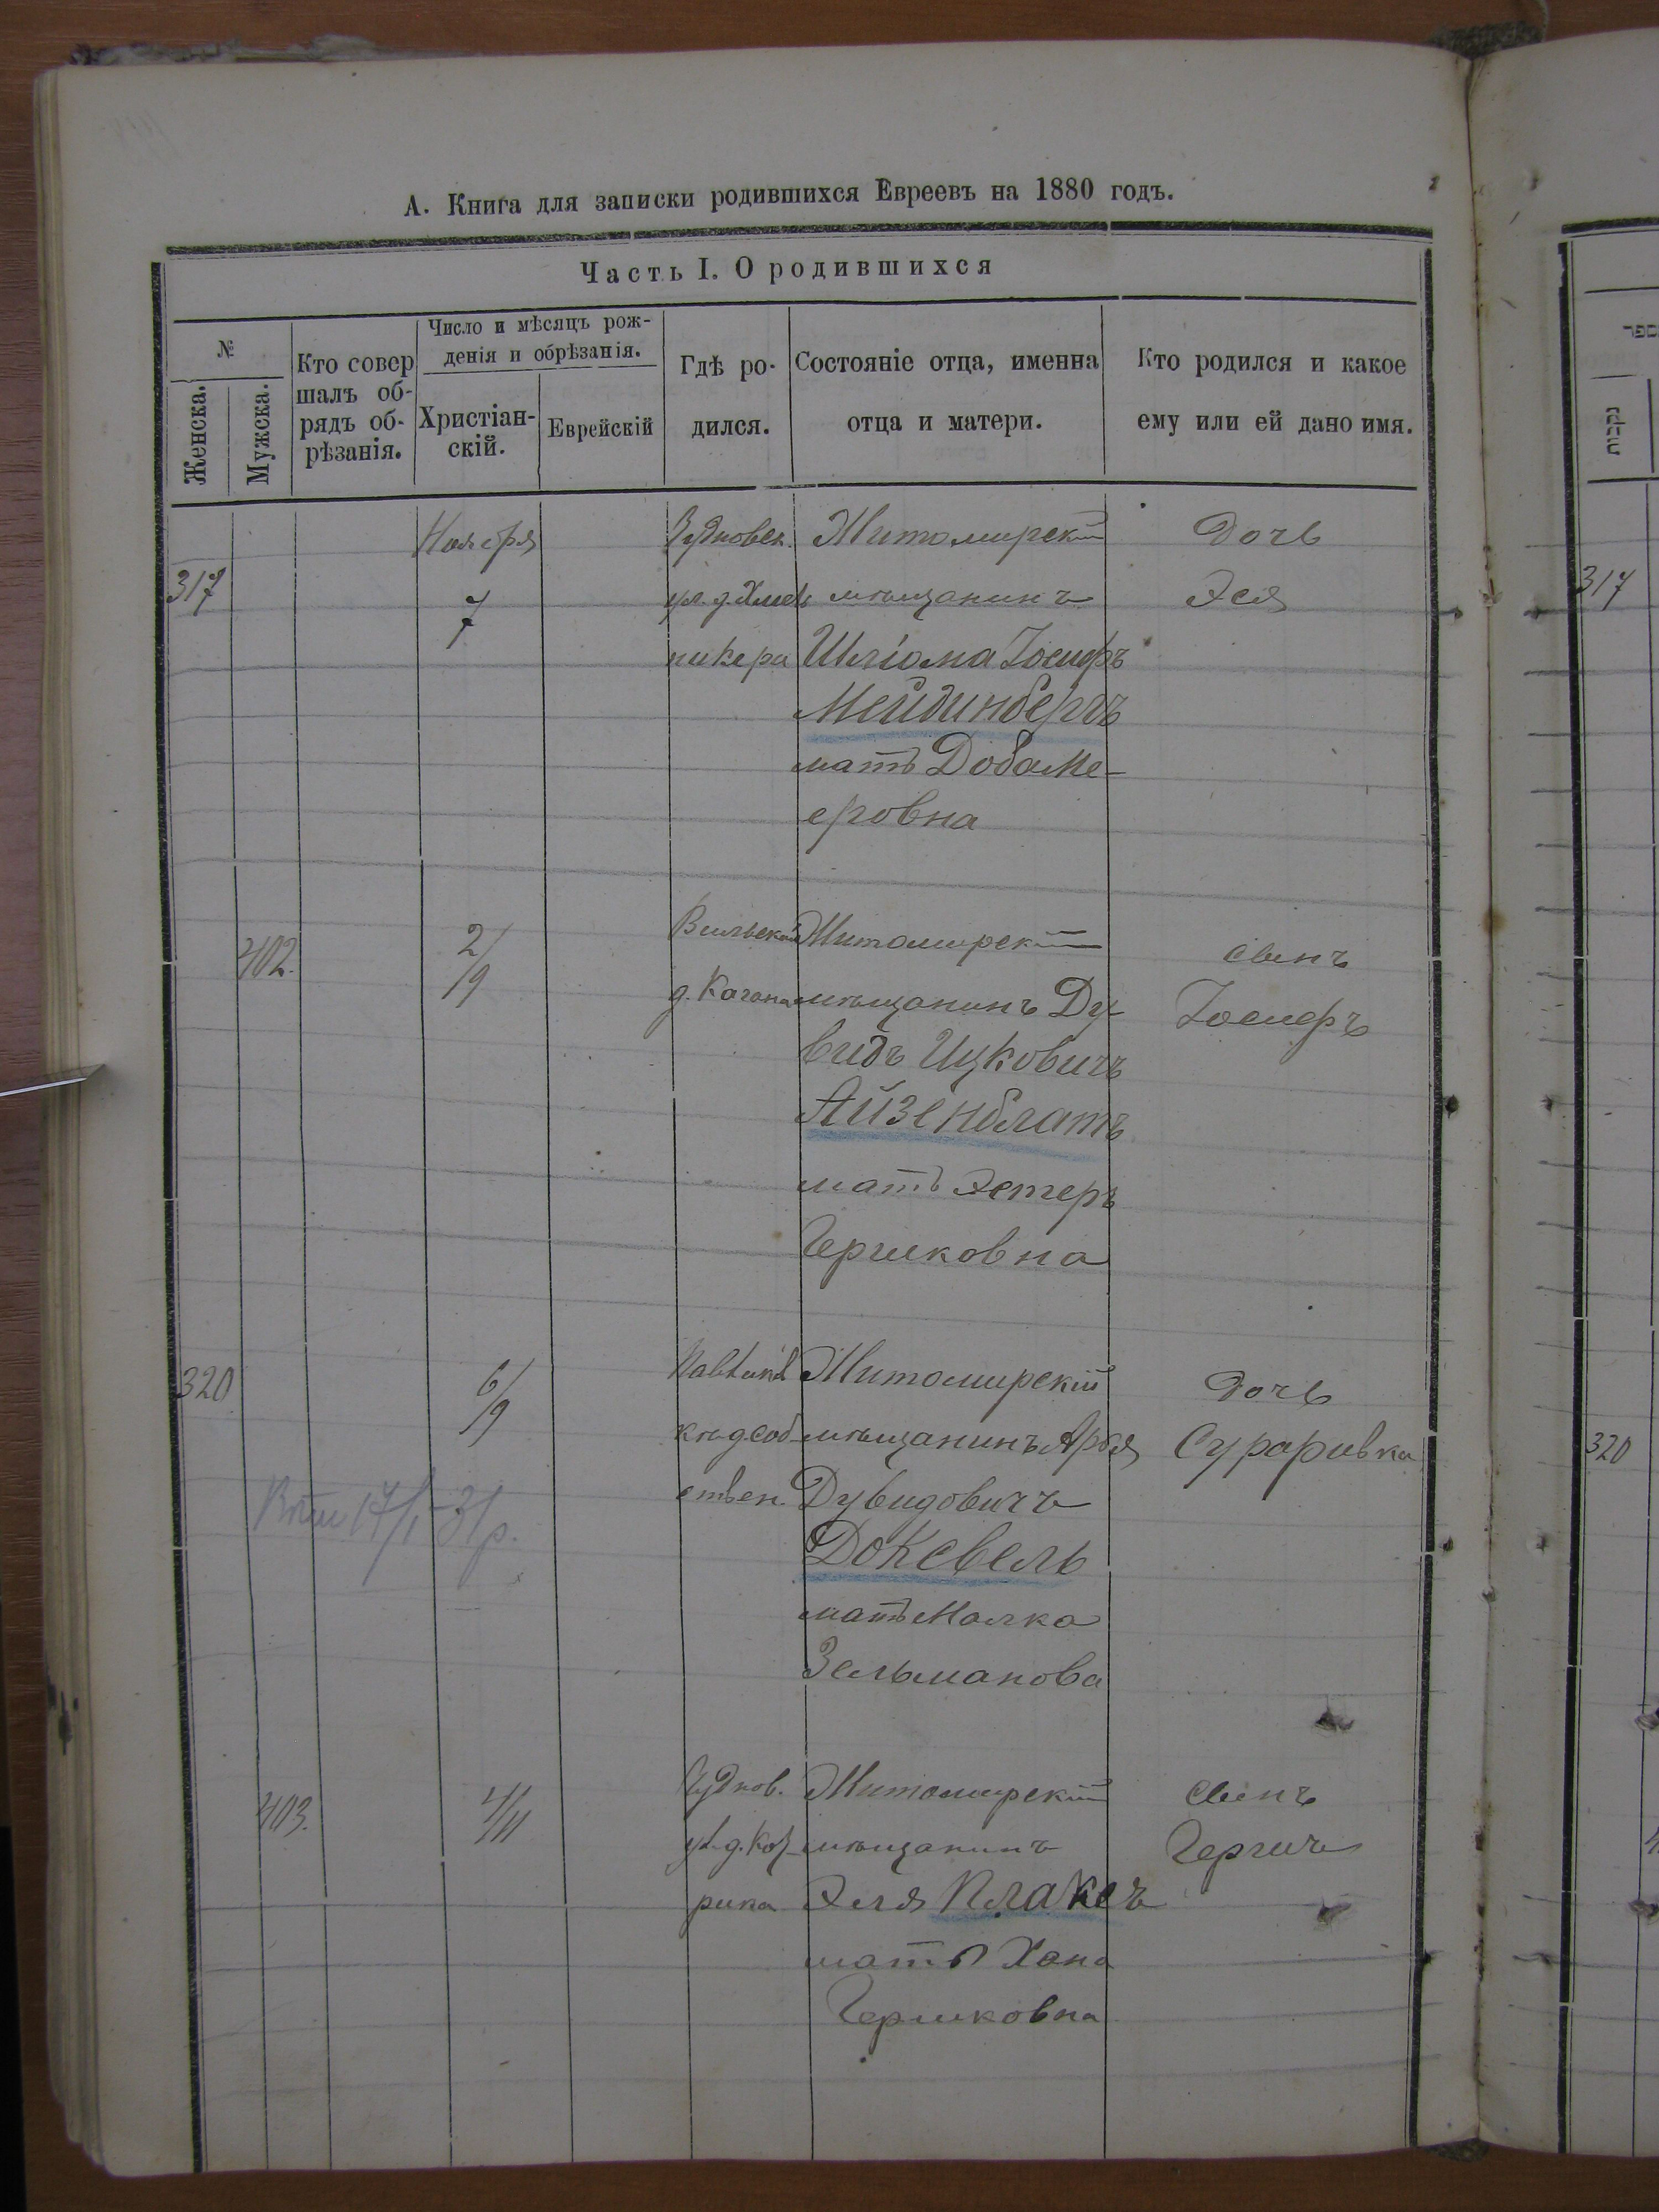 А. Книга для записки родившихся Евреевъ на 1880 годъ.
Часть I. О родившихся
№
Женска.
Мужска.
Кто совер
шалъ об-
рядъ об-
рѣзанія.
Число и мѣсяцъ рож-
денія и обрѣзанія.
Христіан-
скій.
Еврейскій
Гдѣ ро-
дился.
Состояніе отца, именна
отца и матери.
Кто родился и какое
ему или ей дано имя.
נקבות
317
Ноября
7
Чудновск.
ул. д.
Житомирскій
мѣщанинъ
Шліома Іосифъ
Мейдинбергъ
мать Доба Ме-
еровна
Дочь
Эся
317
402.
2/9
Вильская
д. Кагана
Житомирскій
мѣщанинъ Ду
видъ Ицковичъ
Айзенблатъ
мать Эстеръ
Гершковна
сынъ
Іосифъ
320
6/9
д. соб
ствен.
Житомирскій
мѣщанинъ
Дувидовичъ
Доксвель
мать Малка
Зельманова
Дочь
Сураривка
320
17/1 31р.
403.
4/11
Чуднов.
ул. д.
Житомирскій
мѣщанинъ
Эля Плаксъ
мать Хана
Гершковна
сынъ
Гершъ